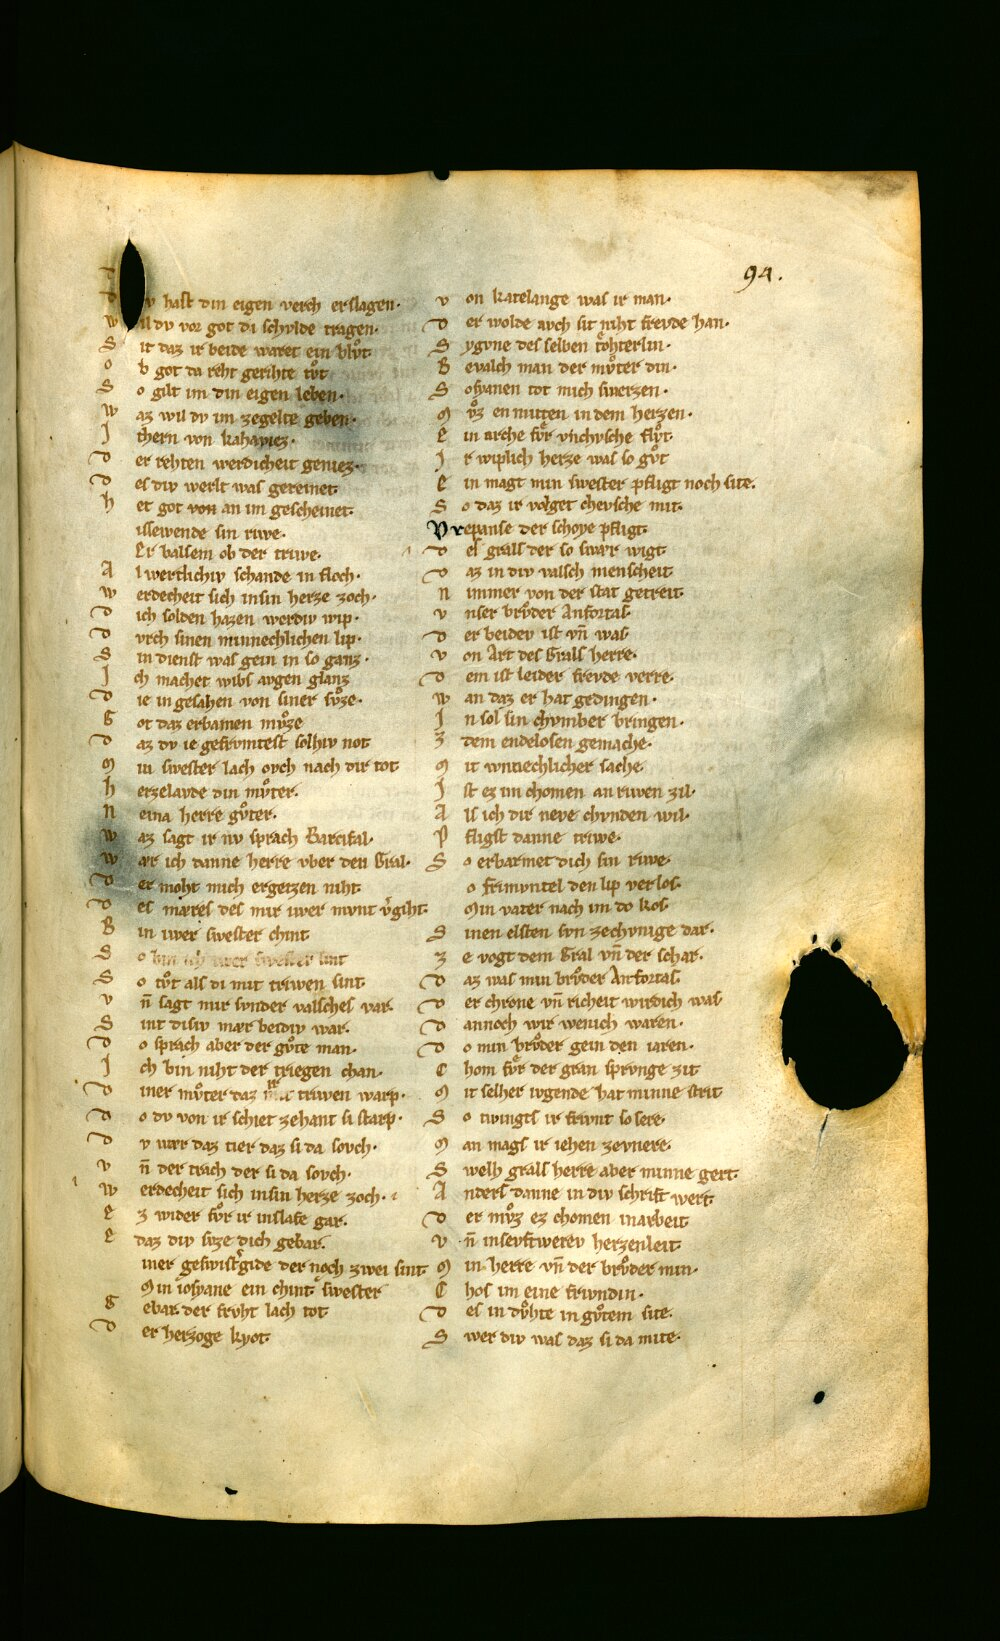 94.
Dv hast din eigen verch erslagen·
Wil dv vor got di schvlde tragen·
Sit daz ir beide waret ein blůt
Ob got da reht gerihte tůt
So gilt im din eigen leben·
Waz wil dv im ze gelte geben·
Ithern von kahaviez·
Der rehten werdicheit geniez·
Des div werlt was gereinet
Het got von an im gescheinet
issewende sin rwe·
Er balsem ob der triwe·
Al wertlichiv schande in floch·
Werdecheit sich in sin herze zoch·
Dich solden hazen werdiv wip·
Dvrch sinen minnechlichen lip·
Sin dienst was gein in so ganz·
Ich machet wibs avgen glanz
Die in gesahen von siner sv̊ze·
Got daz erbamen mv̊ze
Daz dv ie gefrvmtest solhiv not
Min swester lach ovch nach dir tot
Herzelavde din mv̊ter·
Neina herre gv̊ter·
Waz sagt ir nv sprach Parcifal·
Wær ich danne herre vber den Gral·
Der moht mich ergetzen niht
Des mæres des mir iwer mvnt v̄giht·
Bin iwer swester chint
So bin ich iwer swester sint
So tv̊t als di mit triwen sint
Vn̄ sagt mir svnder valsches var·
Sint disiv mær beidiv war·
Do sprach aber der gv̊te man·
Ich bin niht der triegen chan·
Diner mv̊ter daz ir triwen warp·
Do dv von ir schiet zehant si starp·
Dv wær daz tier daz si da sovch·
Vn̄ der trach der si da sovch·
Werdecheit sich in sin herze zoch·
Ez wider fv̊r ir in slafe gar·
E daz div svze dich gebar·
iner geswistˢgide der noch zwei sint
Min ioshyane ein chint swester
Gebar der frvht lach tot
Der herzoge kyot
Von katelange was ir man·
Der wolde avch sit niht frevde han·
Sygvne des selben tôhterlin·
Bevalch man der mv̊ter din·
Sosyanen tot mich swerzen·
Mv̊z en mitten in dem herzen·
Ein arche fv̊r vnchvsche flv̊t·
Ir wiplich herze was so gv̊t
Ein magt min swester pfligt noch site.
So daz ir volget chevsche mit·
Vrepanse der schoye pfligt
Des grals der so swær wigt
Daz in div valsch menscheit
Nimmer von der stat getreit
Vnser brv̊der Anfortas·
Der beidev ist vn̄ was
Von Art des Grals herre·
Dem ist leider frevde verre·
Wan daz er hat gedingen·
In sol sin chvmber bringen·
Z dem endelosen gemache·
Mit wntiechlicher sache
Ist ez im chomen an riwen zil·
Als ich dir neve chvnden wil·
Pfligst danne triwe·
So erbarmet dich sin riwe·
o frimvntel den lip verlos·
Min vater nach im do kos·
Sinen elsten svn ze chvnige dar·
Ze vogt dem Gral vn̄ der schar·
Daz was min brv̊der Anfortas
Der chrone vn̄ richeit wirdich was
Dannoch wir wenich waren·
Do min brv̊der gein den iaren·
Chom fv̊r der gran sprvnge zit
Mit selher ivgende hat minne strit
So twingts ir frivnt so sere·
Man mags ir iehen ze vnere·
Swelh grals herre aber minne gert·
Anders danne in div schrift wert
Der mv̊z ez chomen in arbeit
Vn̄ in sevftwerev herzenleit
Min herre vn̄ der brv̊der min·
Chos im eine frivndin·
Des in dv̊hte in gv̊tem site·
Swer div was daz si da mite·